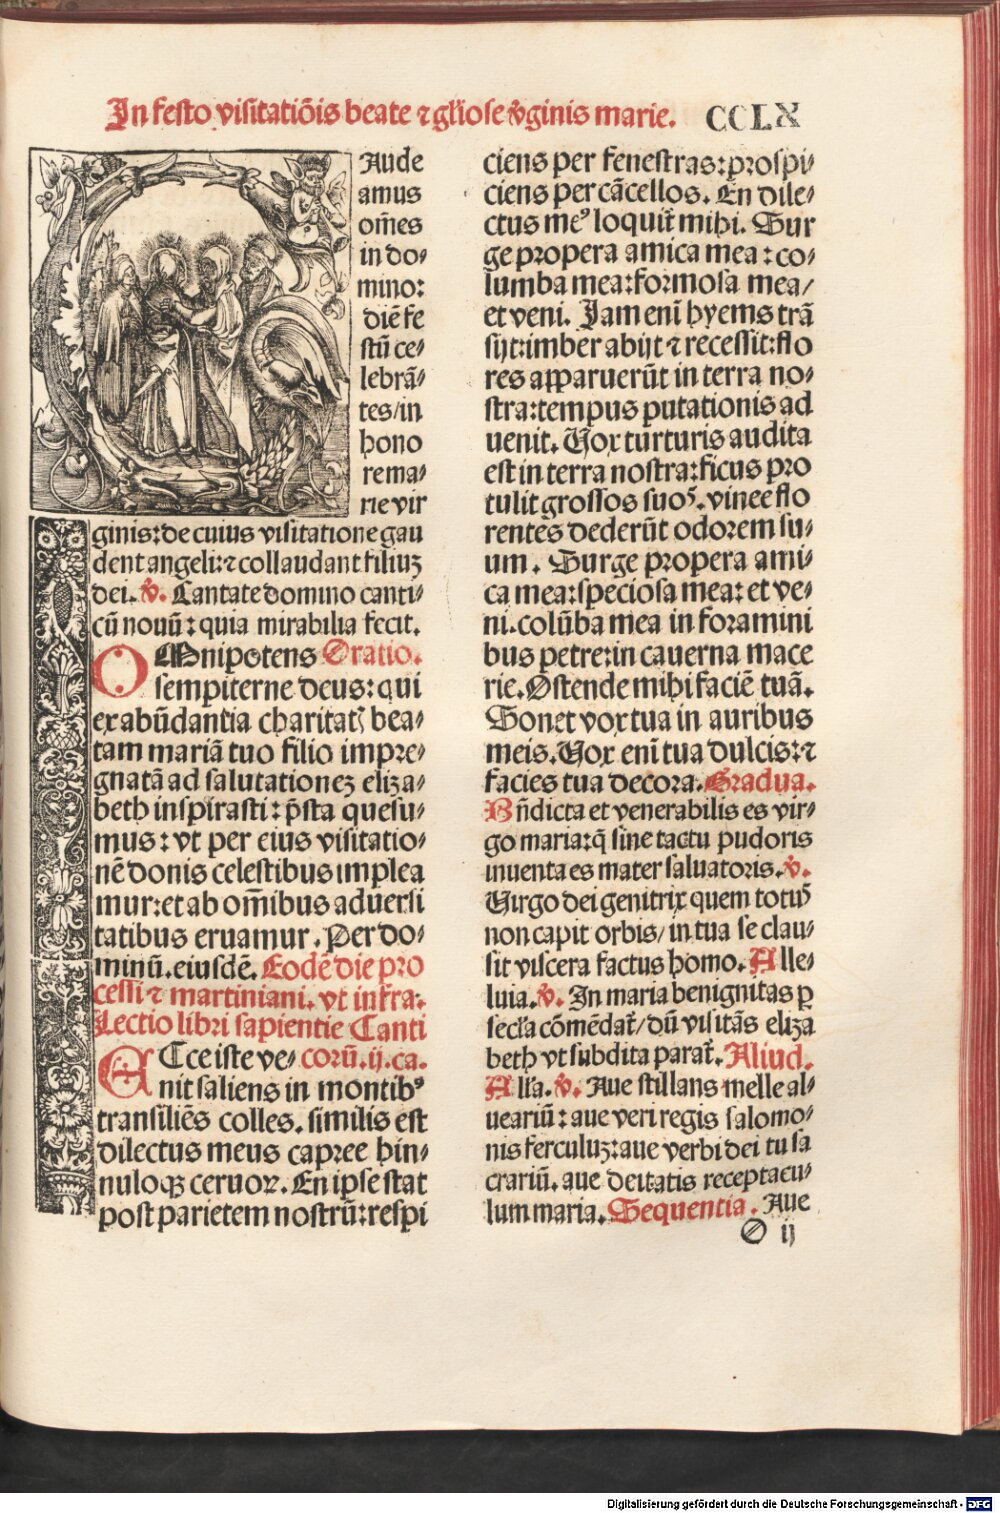 In festo visitatiõis beate ⁊ gl'iose v̾ginis marie. CCLX
Aude
amus
om̃es
in do⸗
mino:
diẽ fe
stũ ce⸗
lebrã⸗
tes/in
hono
re ma⸗
rie vir
ginis: de cuius visitatione gau
dent angeli: ⁊ collaudant filiuꝫ
dei. ℣. Cantate domino canti⸗
cũ nouũ: quia mirabilia fecit.
OMnipotens Oratio.
sempiterne deus: qui
ex abũdantia charitatꝭ bea⸗
tam mariã tuo filio impre⸗
gnatã ad salutationeꝫ eliza⸗
beth inspirasti: p̃sta quesu⸗
mus: vt per eius visitatio⸗
nẽ donis celestibus implea
mur: et ab om̃ibus aduersi
tatibus eruamur. Per do⸗
minũ. eiusdẽ. Eodẽ die pro
cessi ⁊ martiniani. vt infra.
Lectio libri sapientie Canti
ECce iste ve⸗ corũ. ij. ca.
nit saliens in montibꝰ
transiliẽs colles. similis est
dilectus meus capree hin⸗
nuloqꝫ ceruor. En ipse stat
post parietem nostrũ: respi
ciens per fenestras: prospi⸗
ciens per cãcellos. En dile⸗
ctus meꝰ loquit̃ mihi. Sur
ge propera amica mea: co⸗
lumba mea: formosa mea/
et veni. Jam enĩ hyems trã
sijt: imber abijt ⁊ recessit: flo
res apparuerũt in terra no⸗
stra: tempus putationis ad
uenit. Vox turturis audita
est in terra nostra: ficus pro
tulit grossos suoꝝ. vinee flo
rentes dederũt odorem su⸗
um. Surge propera ami⸗
ca mea: speciosa mea: et ve⸗
ni. colũba mea in foramini
bus petre: in cauerna mace
rie. Ostende mihi faciẽ tuã.
Sonet vox tua in auribus
meis. Vox enĩ tua dulcis: ⁊
facies tua decora. Gradua.
Bñdicta et venerabilis es vir⸗
go maria: q̃ sine tactu pudoris
inuenta es mater saluatoris. ℣.
Virgo dei genitrix quem totꝰ
non capit orbis/ in tua se clau⸗
sit viscera factus homo. Alle⸗
luia. ℣. In maria benignitas ꝑ
secl'a cõmẽdat̃/ dũ visitãs eliza
beth vt subdita parat̃. Aliud.
All'a. ℣. Aue stillans melle al⸗
ueariũ: aue veri regis salomo⸗
nis ferculuꝫ: aue verbi dei tu sa
crariũ. aue deitatis receptacu⸗
lum maria. Sequentia. Aue
O ij
Digitalisierung gefördert durch die Deutsche Forschungsgemeinschaft - DFG